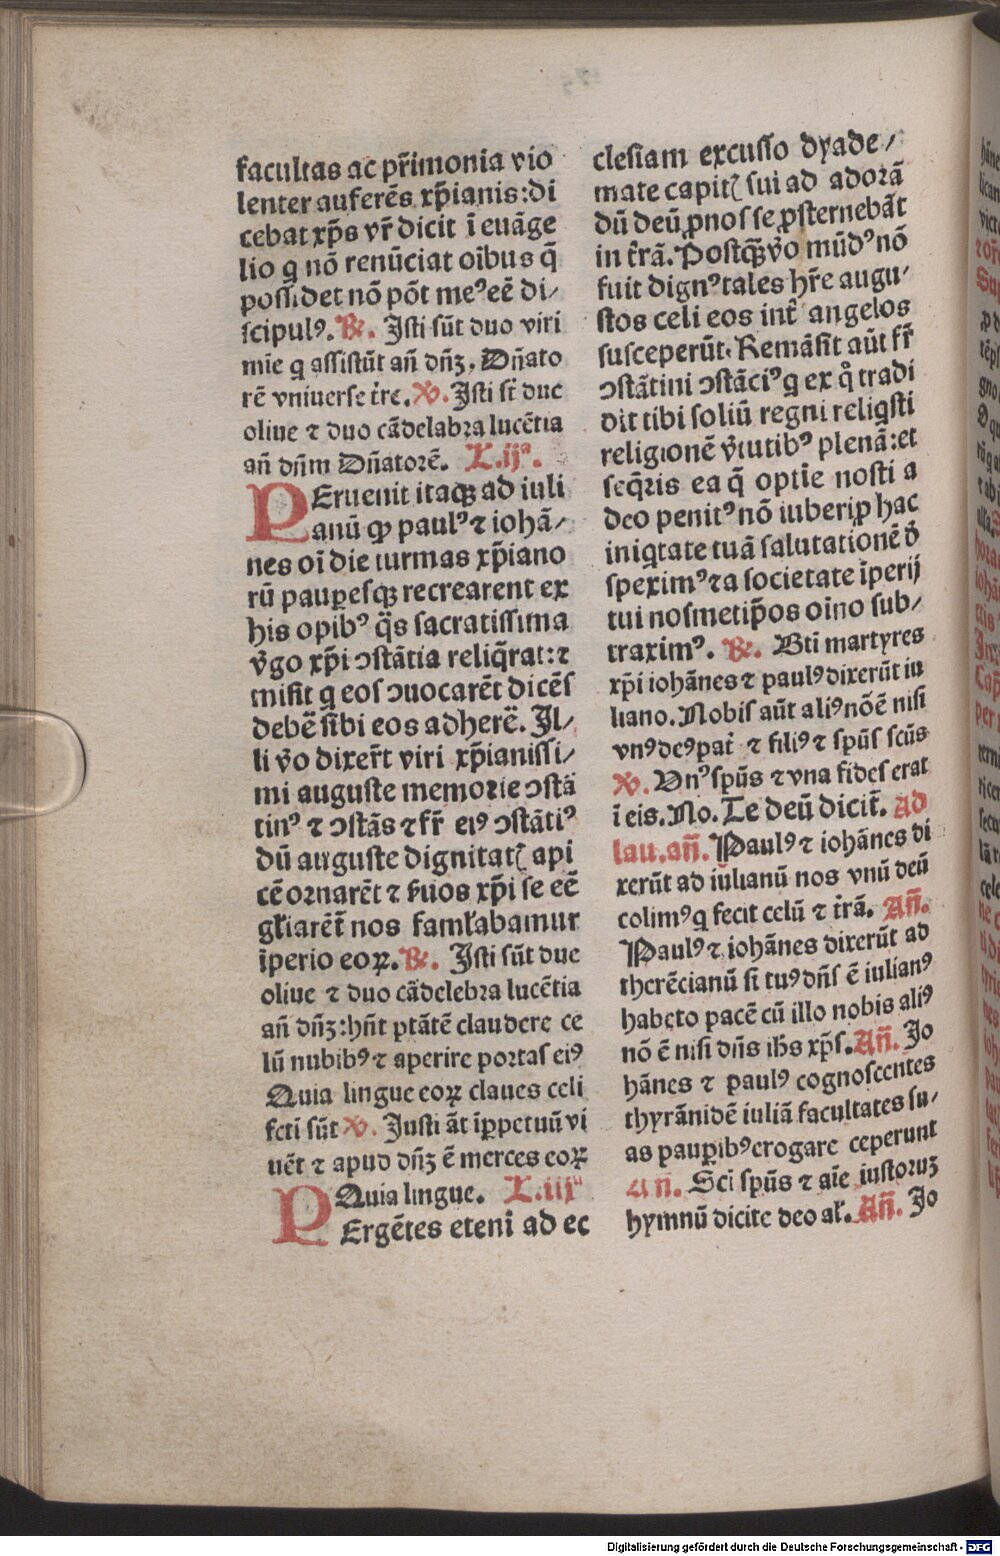 facultas ac pr̃imonia vio
lenter auferẽs xp̃ianis: di
cebat xp̃s vr̃ dicit ĩ euãge
lio q nõ renũciat oĩbus q̃
possidet nõ põt meꝰ eẽ di⸗
scipulꝰ. ℟. Isti sũt duo viri
mĩe q assistũt añ dñꝫ, Dñato
rẽ vniuerse tr̃e. ℣. Isti st̃ due
oliue ⁊ duo cãdelabra lucẽtia
añ dñm Dñatorẽ. L.ijᵃ.
PEruenit itaqꝫ ad iuli
anũ ꝙ paulꝰ ⁊ iohã⸗
nes oĩ die turmas xp̃iano
rũ paupesqꝫ recrearent ex
his opibꝰ q̃s sacratissima
ṽgo xp̃i ↄstãtia reliq̃rat: ⁊
misit q eos ↄuocarẽt dicẽs
debẽ sibi eos adherẽ. Il⸗
li ṽo dixer̃t viri xp̃ianissi⸗
mi auguste memorie ↄstã
tinꝰ ⁊ ↄstãs ⁊ fr̃ eiꝰ ↄstãtiꝰ
dũ auguste dignitatꝭ api
cẽ ornarẽt ⁊ suos xp̃i se eẽ
gl̃iarẽt̃ nos faml̃abamur
ĩperio eoꝝ. ℟. Isti sũt due
oliue ⁊ duo cãdelebra lucẽtia
añ dñꝫ: hñt ptãtẽ claudere ce
lũ nubibꝰ ⁊ aperire portas eiꝰ
Quia lingue eoꝝ claues celi
fcti sũt ℣. Iusti ãt ĩppetuũ vi
uẽt ⁊ apud dñꝫ ẽ merces eoꝝ
Quia lingue. L.iijᵃ
PErgẽtes eteni ad ec
clesiam excusso dyade⸗
mate capitꝭ sui ad adorã
dũ deũ pnos se ꝓsternebãt
in tr̃ã. Postqꝫ ṽo mũdꝰ nõ
fuit dignꝰ tales hr̃e augu⸗
stos celi eos int̃ angelos
susceperũt. Remãsit aũt fr̃
ↄstãtini ↄstãciꝰ q ex q̊ tradi
dit tibi soliũ regni religsti
religionẽ ṽtutibꝰ plenã: et
seq̃ris ea q̃ optie nosti a
deo penitꝰ nõ iuberi ꝓ hac
iniqtate tuã salutationẽ d̾
speximꝰ ⁊ a societate ĩperij
tui nosmetip̃os oĩno sub⸗
traximꝰ. ℟. Bti martyres
xp̃i iohãnes ⁊ paulꝰ dixerũt iu
liano. Nobis aũt aliꝰ nõ ẽ nisi
vnꝰ deꝰ pat̃ ⁊ filiꝰ ⁊ sp̃us sc̃us
℣. Vnꝰ sp̃us ⁊ vna fides erat
ĩ eis. No. Te deũ dicit̃. Ad
lau. añ. Paulꝰ ⁊ iohãnes di
xerũt ad iulianũ nos vnũ deũ
colimꝰ q fecit celũ ⁊ tr̃ã. Añ.
Paulꝰ ⁊ iohãnes dixerũt ad
therẽcianũ si tuꝰ dñs ẽ iulianꝰ
habeto pacẽ cũ illo nobis aliꝰ
nõ ẽ nisi dñs ih̃s xp̃s. Añ. Io
hãnes ⁊ paulꝰ cognoscentes
thyrãnidẽ iuliã facultates su⸗
as paupibꝰ erogare ceperunt
Añ. Sci sp̃us ⁊ aĩe iustoruꝫ
hymnũ dicite deo al̃. Añ. Io
Digitalisierung gefördert durch die Deutsche Forschungsgemeinschaft - DFG